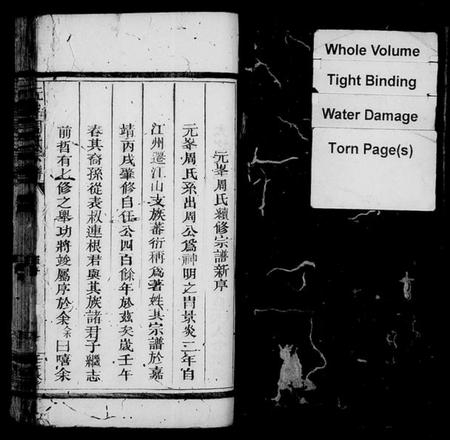 元峯周氏續修宗譜新序
元峯周氏系出周公爲神明之胄景炎二年自
江州遷江山支族蕃衍稱爲著姓其宗譜於嘉
靖丙戌肇修自任公四百餘年於茲矣歲壬午
春其裔孫從表叔連根君與其族諸君子繼志
前哲有七修之舉功將竣屬序於余余曰嘻余
Whole Volume
Tight Binding
Water Damage
Torn Page(s)